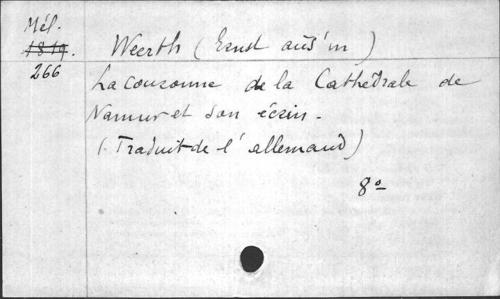 Mél.
1819.
266
Weerth (Ernst aus'm)
La Couronne de la Cathédrale de
Namur et son écrin.
(Traduit de l'allemand)
8º